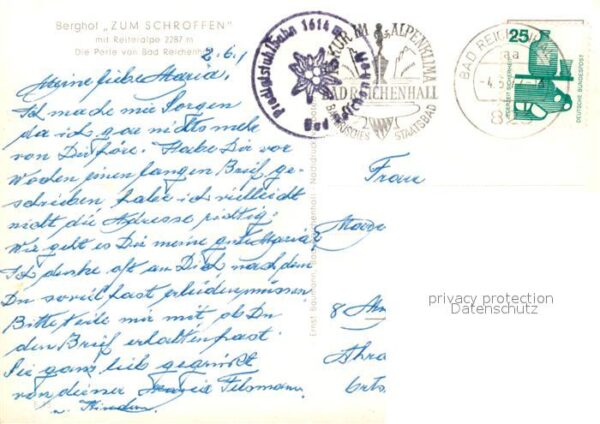 Berghof "ZUM SCHROFFEN"
mit Reiteralpe 2287 m
Die Perle von Bad Reichenhall
2.6.
Meine liebe Maria,
Ich mache mir Sorgen
da ich gar nichts mehr
von Dir höre. Habe Dir vor
Wochen einen langen Brief ge-
schrieben, habe ich vielleicht
nicht die Adresse richtig?
Wie geht es Dir meine gute Maria?
Ich denke oft an Dich nach dem
Du soviel hast erleiden müssen.
Bitte teile mir mit ob Du
den Brief erhalten hast.
Sei ganz lieb gegrüßt
von deiner Maria
u. Kindern
Predigtstuhlbahn 1614 m
Bad Reichenhall
KUR IM ALPENKLIMA
BAD REICHENHALL
BAYRISCHES STAATSBAD
BAD REICHENHALL
25
JEDERZEIT SICHERHEIT
DEUTSCHE BUNDESPOST
Ernst Baumann, Bad Reichenhall
Nachdruck
Frau
8
privacy protection
Datenschutz